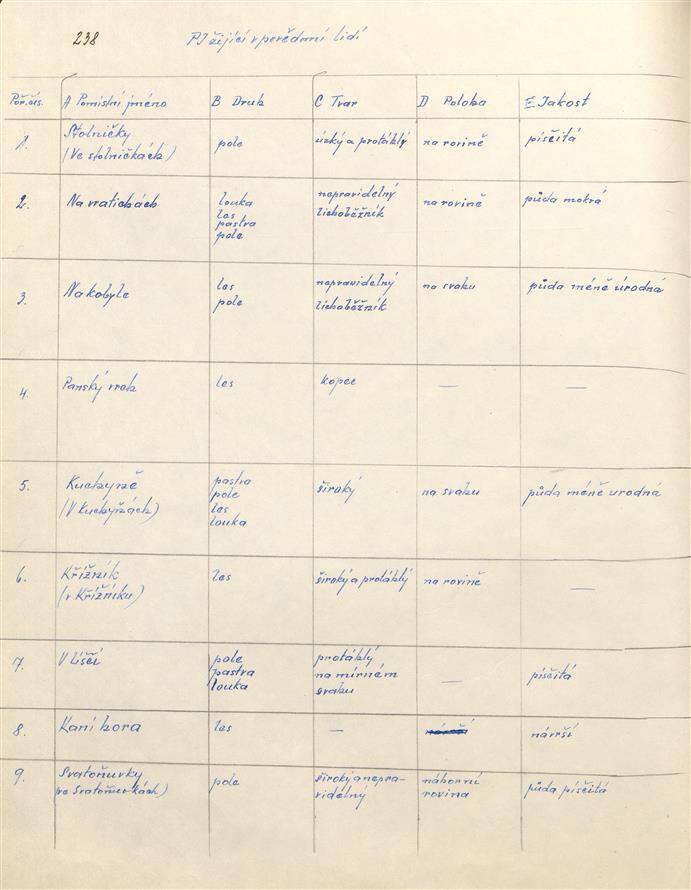 238 PJ žijící v povědomí lidí
Poř.čís. A Pomístní jméno B Druh C Tvar D Poloha E Jakost
1. Stolničky pole úzký a protáhlý na rovině písčitá
(Ve stolničkách)
2. Na vratichách louka nepravidelný na rovině půda mokrá
les lichoběžník
pastva
pole
3. Na kobyle les nepravidelný na svahu půda méně úrodná
pole lichoběžník
4. Panský vrch les kopec — —
5. Kuchyně pastva široký na svahu půda méně urodná
(V Kuchyňách) pole
les
louka
6. Křížník les široký a protáhlý na rovině —
(v Křížníku)
7. V líščí pole protáhlý — písčitá
pastva na mírném
louka svahu
8. Kaní hora les — návrší
9. Svatoňuvky pole široký a nepra- náhorní půda písčitá
(ve Svatoňuvkách) videlný rovina